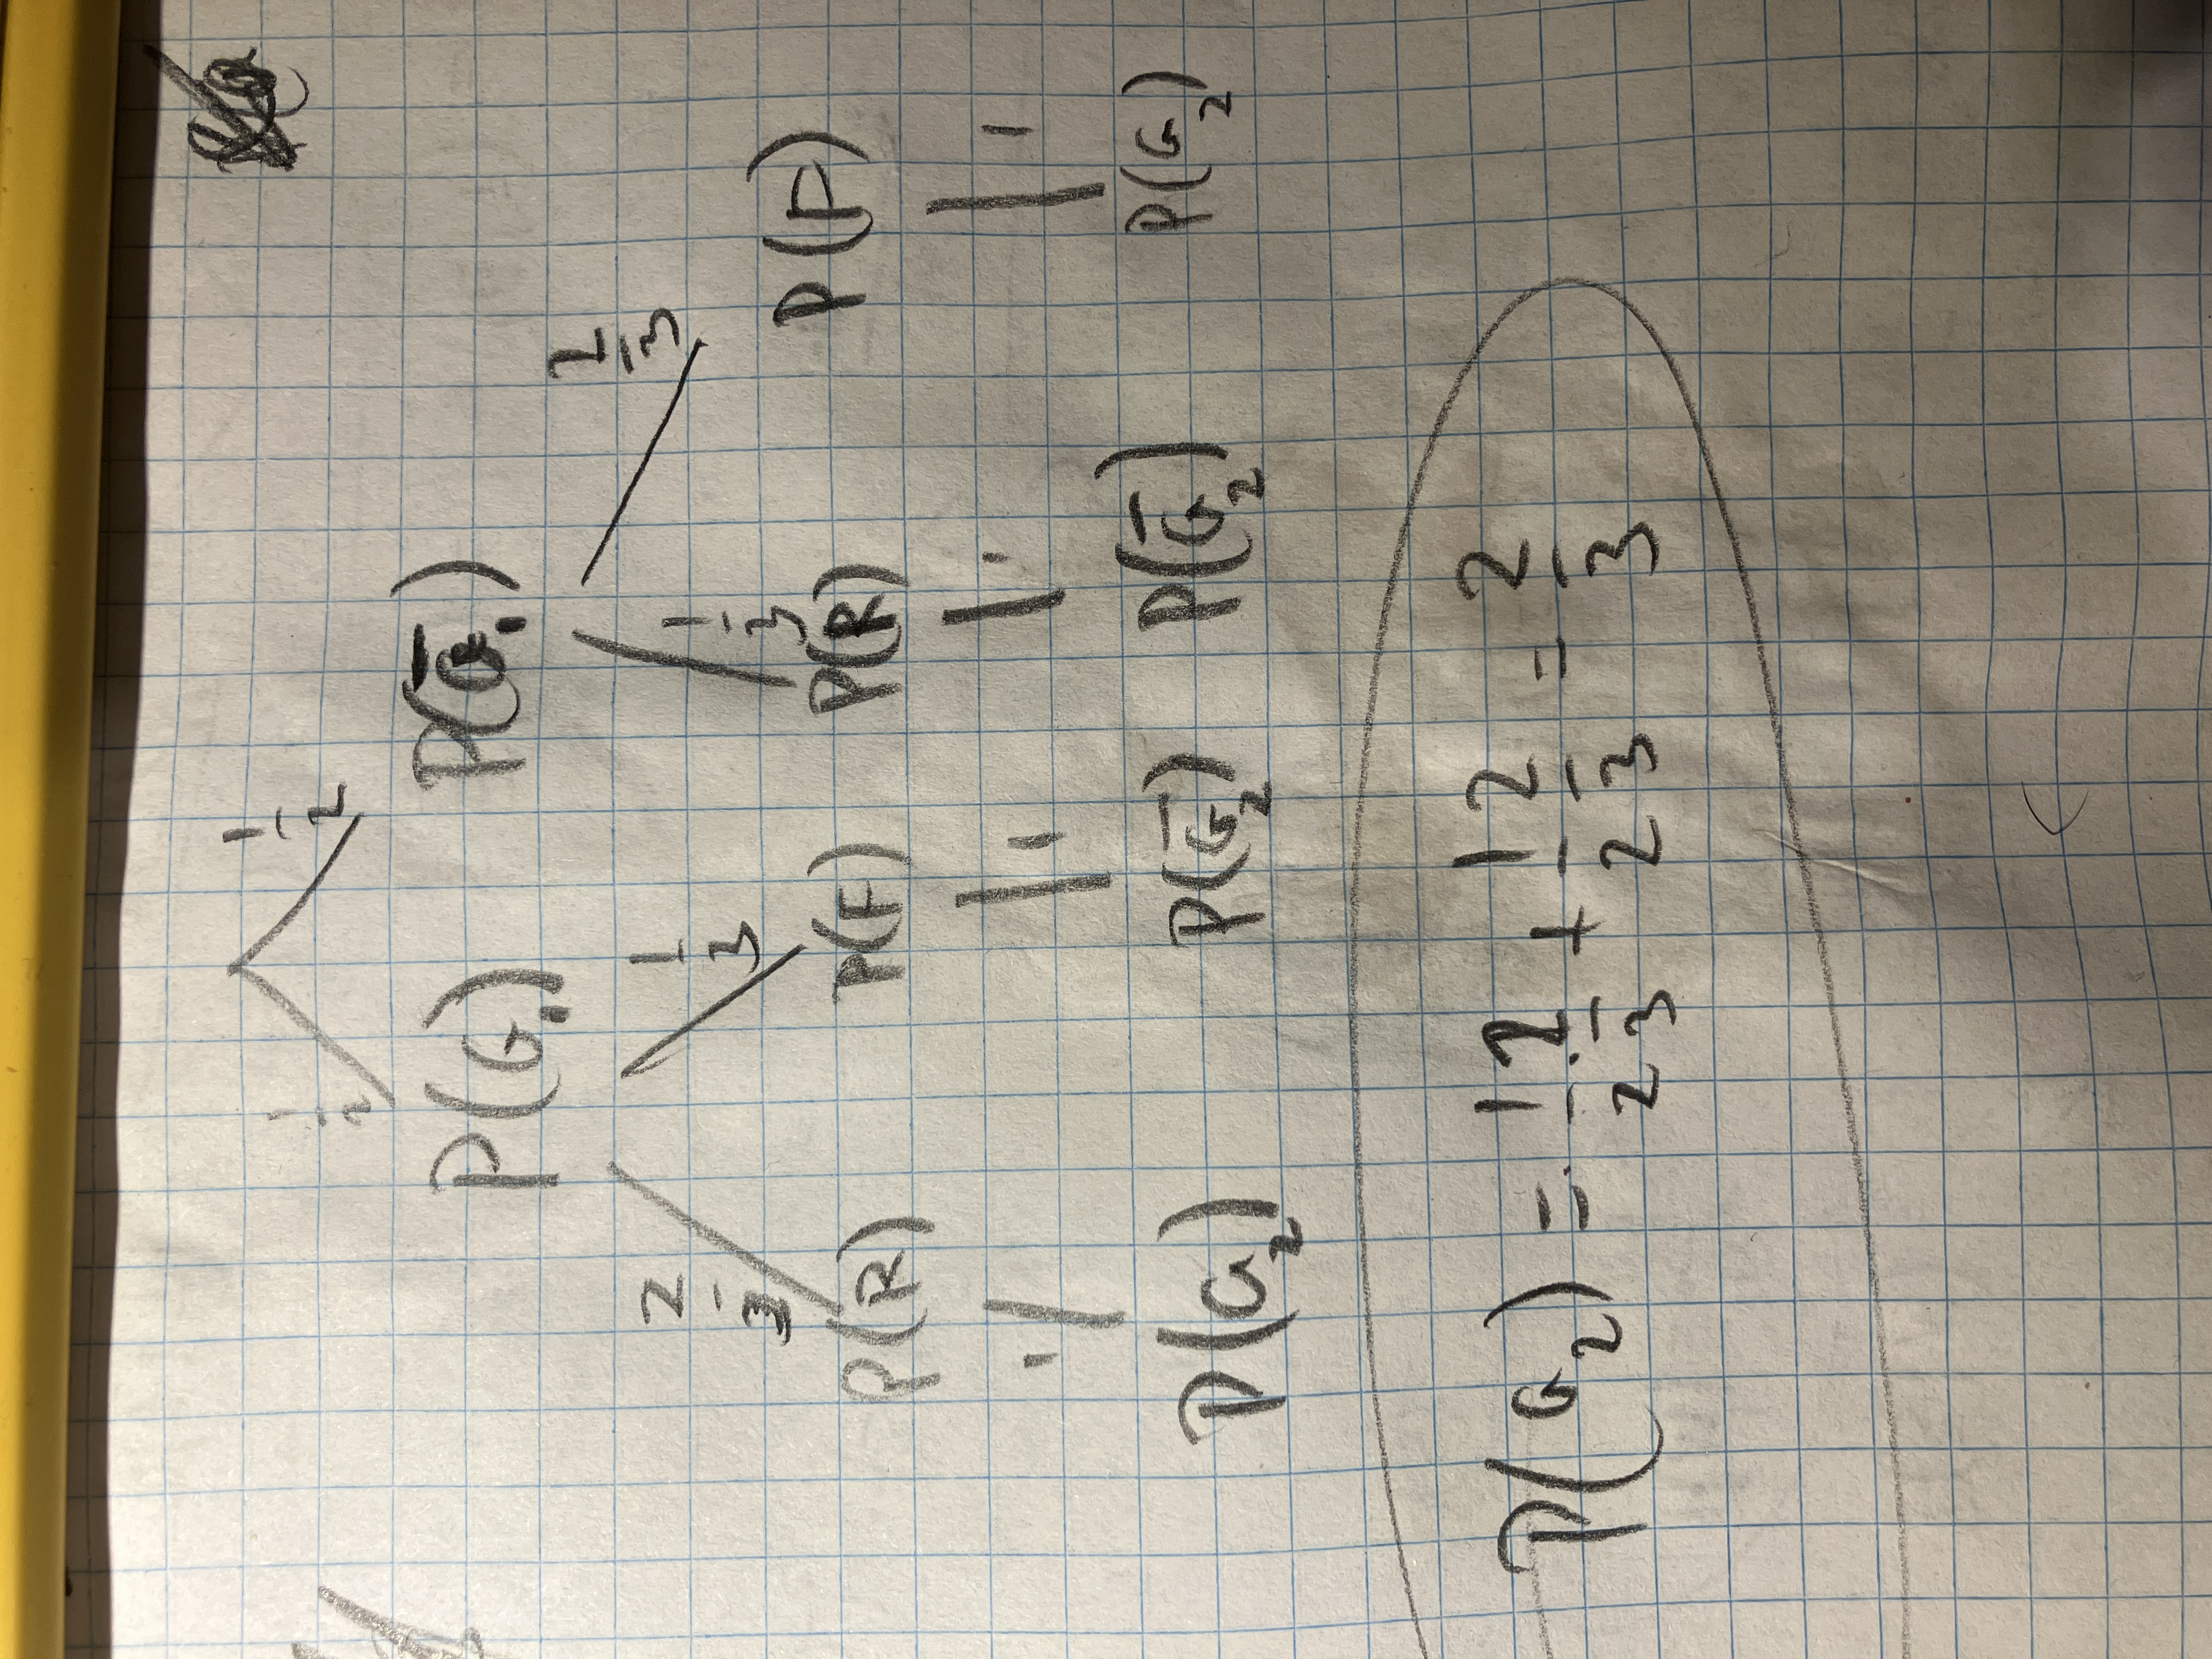 1/2 1/2
P(G₁) P(G̅₁)
2/3 1/3 1/3 2/3
P(R) P(F) P(R) P(F)
1 1 1 1
P(G₂) P(G̅₂) P(G̅₂) P(G₂)
P(G₂) = 1/2 · 2/3 + 1/2 2/3 = 2/3